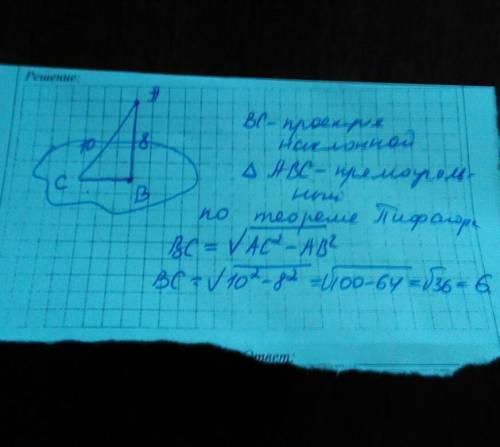 Решение:
A
10
8
C
B
BC - проекция
наклонной
Δ ABC - прямоуголь-
ный
по теореме Пифагора
BC = √AC² - AB²
BC = √10² - 8² = √100 - 64 = √36 = 6
Ответ: